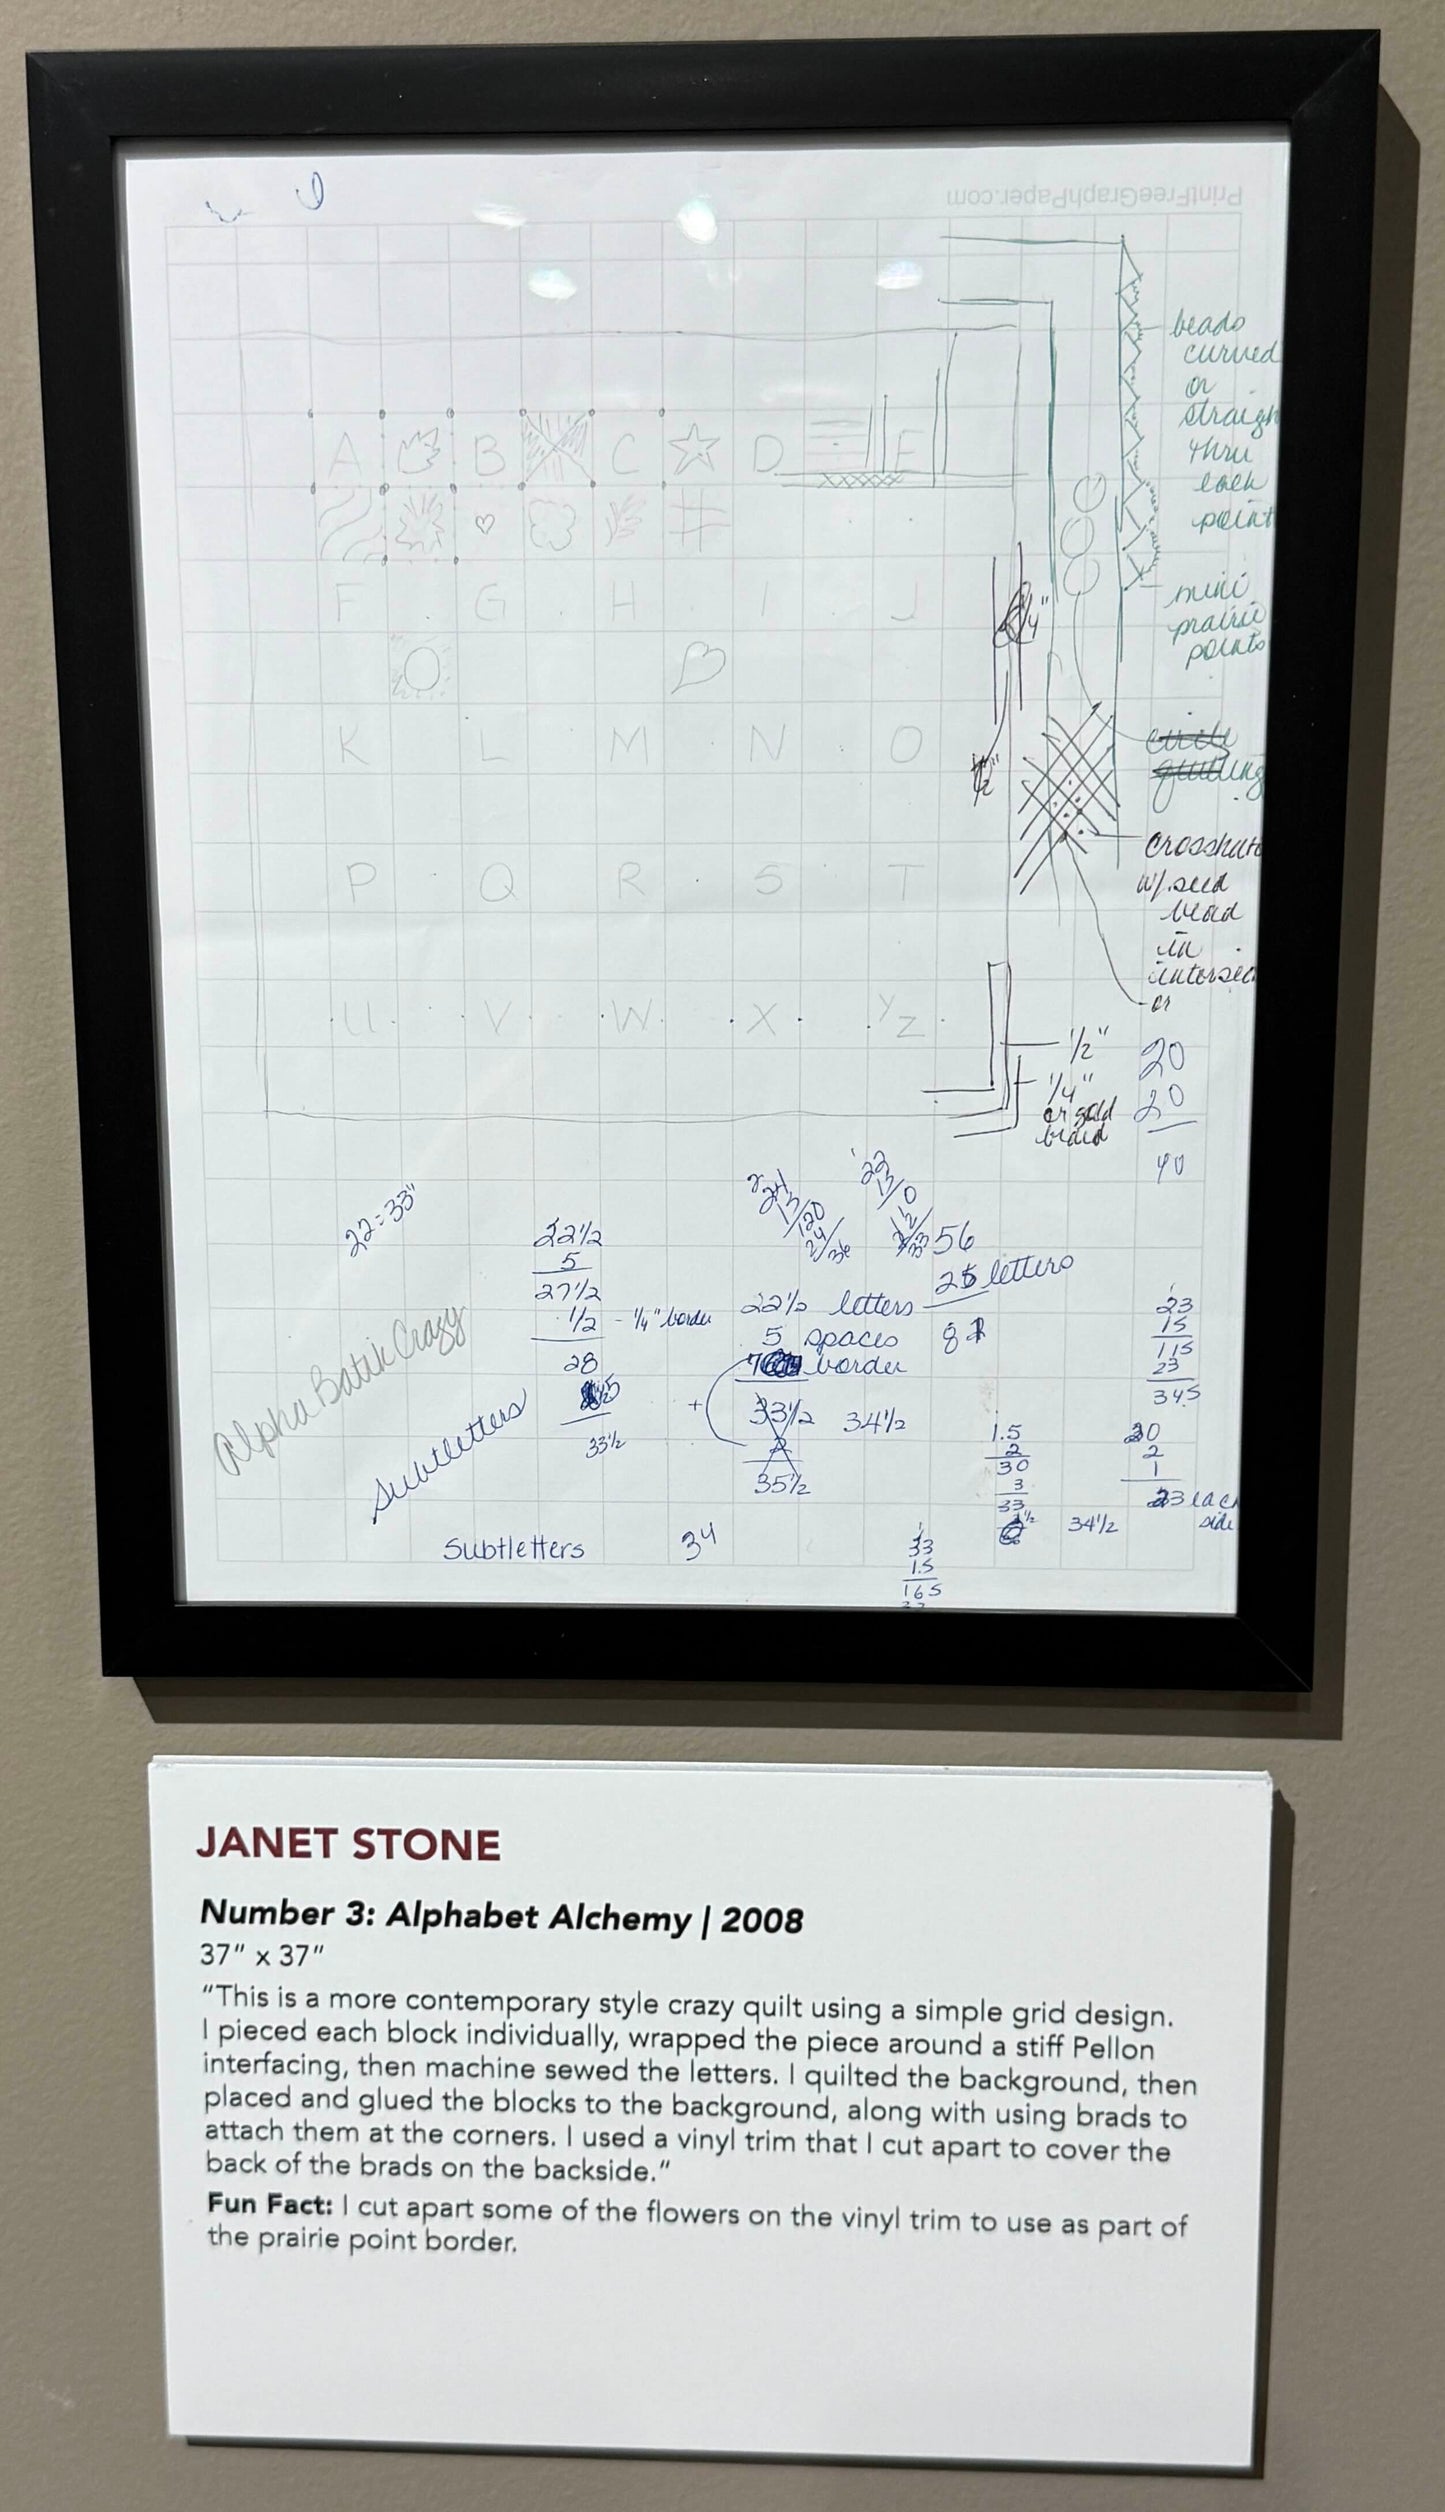 PrintFreeGraphPaper.com
beads
curved
or
straigh
thru
each
point
mini
prairie
points
A B C D E
F G H I J
1/4"
K L M N O
1/2"
circle
quilting
crosshatc
w/ seed
bead
in
intersec
or
P Q R S T
U V W X Y Z
1/2"
1/4"
or gold
braid
20
20
40
22=33"
22 1/2
5
27 1/2
1/2 - 1/4" border
28
33 1/2
22 1/2 letters
5 spaces
border
33 1/2 34 1/2
2
35 1/2
56
letters
23
15
115
23
345
Alpha Batik Crazy
Subtletters
1.5
2
30
3
33
34 1/2
20
2
1
23 each
side
Subtletters 34
33
1.5
165
JANET STONE
Number 3: Alphabet Alchemy | 2008
37" x 37"
"This is a more contemporary style crazy quilt using a simple grid design.
I pieced each block individually, wrapped the piece around a stiff Pellon
interfacing, then machine sewed the letters. I quilted the background, then
placed and glued the blocks to the background, along with using brads to
attach them at the corners. I used a vinyl trim that I cut apart to cover the
back of the brads on the backside."
Fun Fact: I cut apart some of the flowers on the vinyl trim to use as part of
the prairie point border.